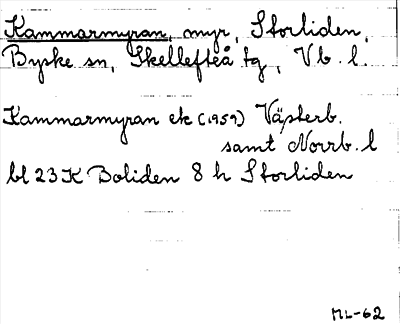 Kammarmyran, myr, Storliden,
Byske sn, Skellefteå tg, Vb. l.
Kammarmyran ek (1959) Västerb.
samt Norrb. l
bl 23 K Boliden 8 h Storliden
ML-62